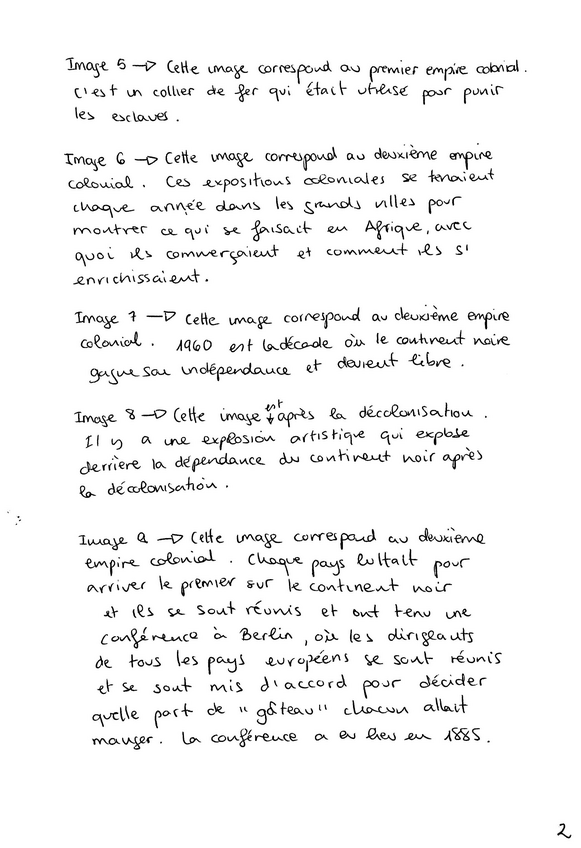 Image 5 → Cette image correspond au premier empire colonial.
C'est un collier de fer qui était utilisé pour punir
les esclaves.
Image 6 → Cette image correspond au deuxième empire
colonial. Ces expositions coloniales se tenaient
chaque année dans les grands villes pour
montrer ce qui se faisait en Afrique, avec
quoi ils commerçaient et comment ils s'
enrichissaient.
Image 7 → Cette image correspond au deuxième empire
colonial. 1960 est la décade où le continent noire
gagne son indépendance et devient libre.
Image 8 → Cette image est après la décolonisation.
Il y a une explosion artistique qui explose
derrière la dépendance du continent noir après
la décolonisation.
Image 9 → Cette image correspond au deuxième
empire colonial. Chaque pays luttait pour
arriver le premier sur le continent noir
et ils se sont réunis et ont tenu une
conférence à Berlin, où les dirigeants
de tous les pays européens se sont réunis
et se sont mis d'accord pour décider
quelle part de "gâteau" chacun allait
manger. La conférence a eu lieu en 1885.
2